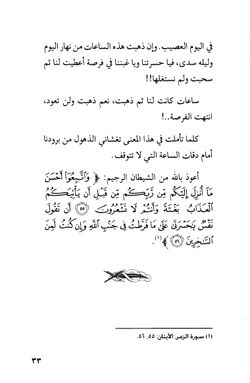 في اليوم العصيب. وإن ذهبت هذه الساعات من نهار اليوم
وليله سدى، فيا حسرتنا ويا غبننا في فرصة أعطيت لنا ثم
سحبت ولم نستغلها!!
ساعات كانت لنا ثم ذهبت، نعم ذهبت ولن تعود،
انتهت الفرصة..!
كلما تأملت في هذا المعنى تغشاني الذهول من برودنا
أمام دقات الساعة التي لا تتوقف.
أعوذ بالله من الشيطان الرجيم: ﴿ وَاتَّبِعُوا أَحْسَنَ
مَا أُنزِلَ إِلَيْكُم مِّن رَّبِّكُم مِّن قَبْلِ أَن يَأْتِيَكُمُ
الْعَذَابُ بَغْتَةً وَأَنتُمْ لَا تَشْعُرُونَ ٥٥ أَن تَقُولَ
نَفْسٌ يَا حَسْرَتَىٰ عَلَىٰ مَا فَرَّطتُ فِي جَنبِ اللَّهِ وَإِن كُنتُ لَمِنَ
السَّاخِرِينَ ٥٦ ﴾(١).
(١) سورة الزمر، الآيتان: ٥٥، ٥٦.
٣٣